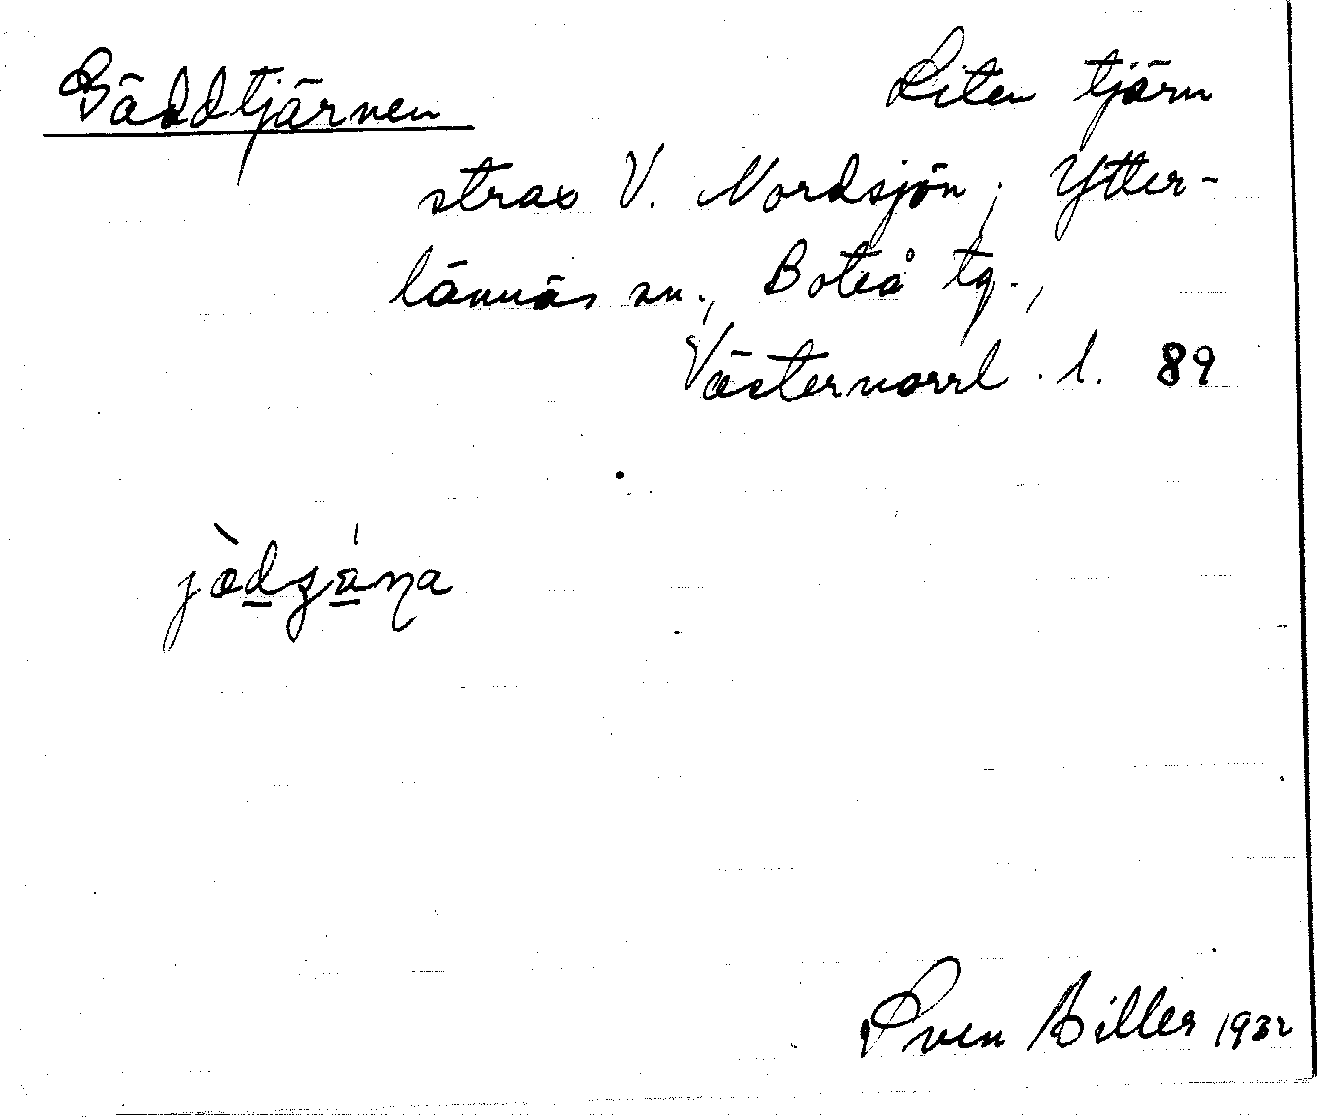 Gäddtjärnen
Liten tjärn
strax V. Nordsjön, Ytter-
lännäs sn., Boteå tg.,
Västernorrl. l. 89
Sven Hiller 1932